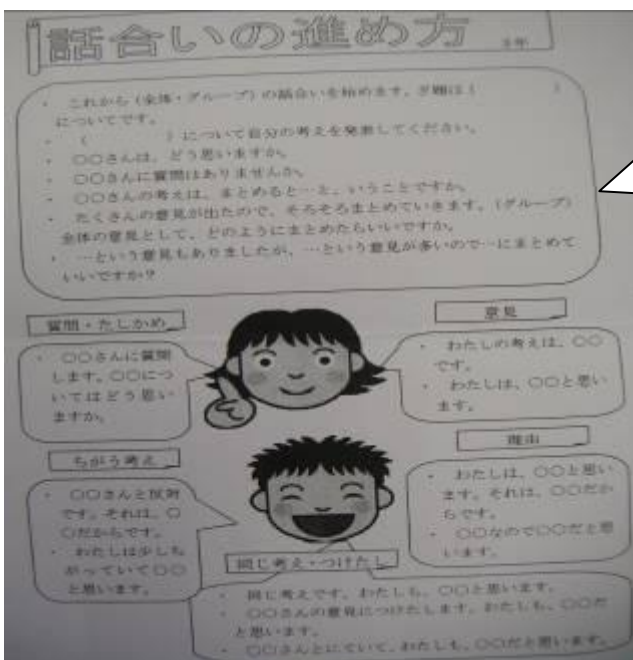 話合いの進め方 3年
・ これから（全体・グループ）の話合いを始めます。ぎ題は（　　　　）
についてです。
・ （　　　　）について自分の考えを発表してください。
・ ○○さんは、どう思いますか。
・ ○○さんに質問はありませんか。
・ ○○さんの考えは、まとめると…と、いうことですか。
・ たくさんの意見が出たので、そろそろまとめていきます。（グループ）
全体の意見として、どのようにまとめたらいいですか。
・ …という意見もありましたが、…という意見が多いので…にまとめて
いいですか？
質問・たしかめ
・ ○○さんに質問
します。○○につ
いてはどう思い
ますか。
意見
・ わたしの考えは、○○
です。
・ わたしは、○○と思い
ます。
ちがう考え
・ ○○さんと反対
です。それは、○
○だからです。
・ わたしは少しち
がっていて○○
と思います。
理由
・ わたしは、○○と思い
ます。それは、○○だか
らです。
・ ○○なので○○だと思
います。
同じ考え・つけたし
・ 同じ考えです。わたしも、○○と思います。
・ ○○さんの意見につけたします。わたしも、○○だ
と思います。
・ ○○さんとにていて、わたしも、○○だと思います。